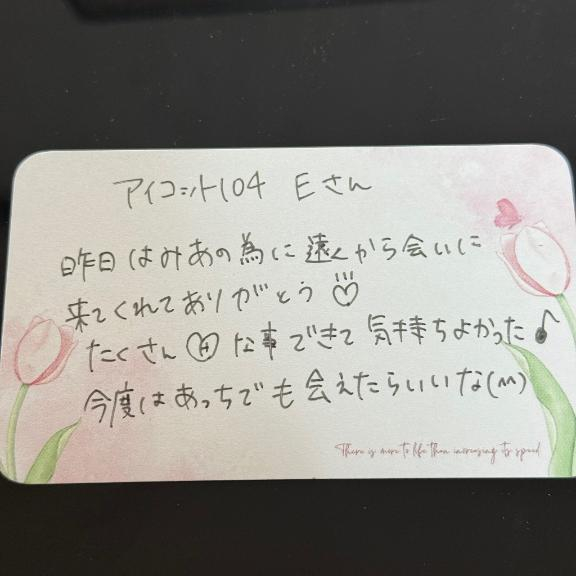 アイコット104 Eさん
昨日はみあの為に遠くから会いに
来てくれてありがとう♡
たくさんⒽな事できて気持ちよかった♪
今度はあっちでも会えたらいいな(^^)
There is more to life than increasing its speed